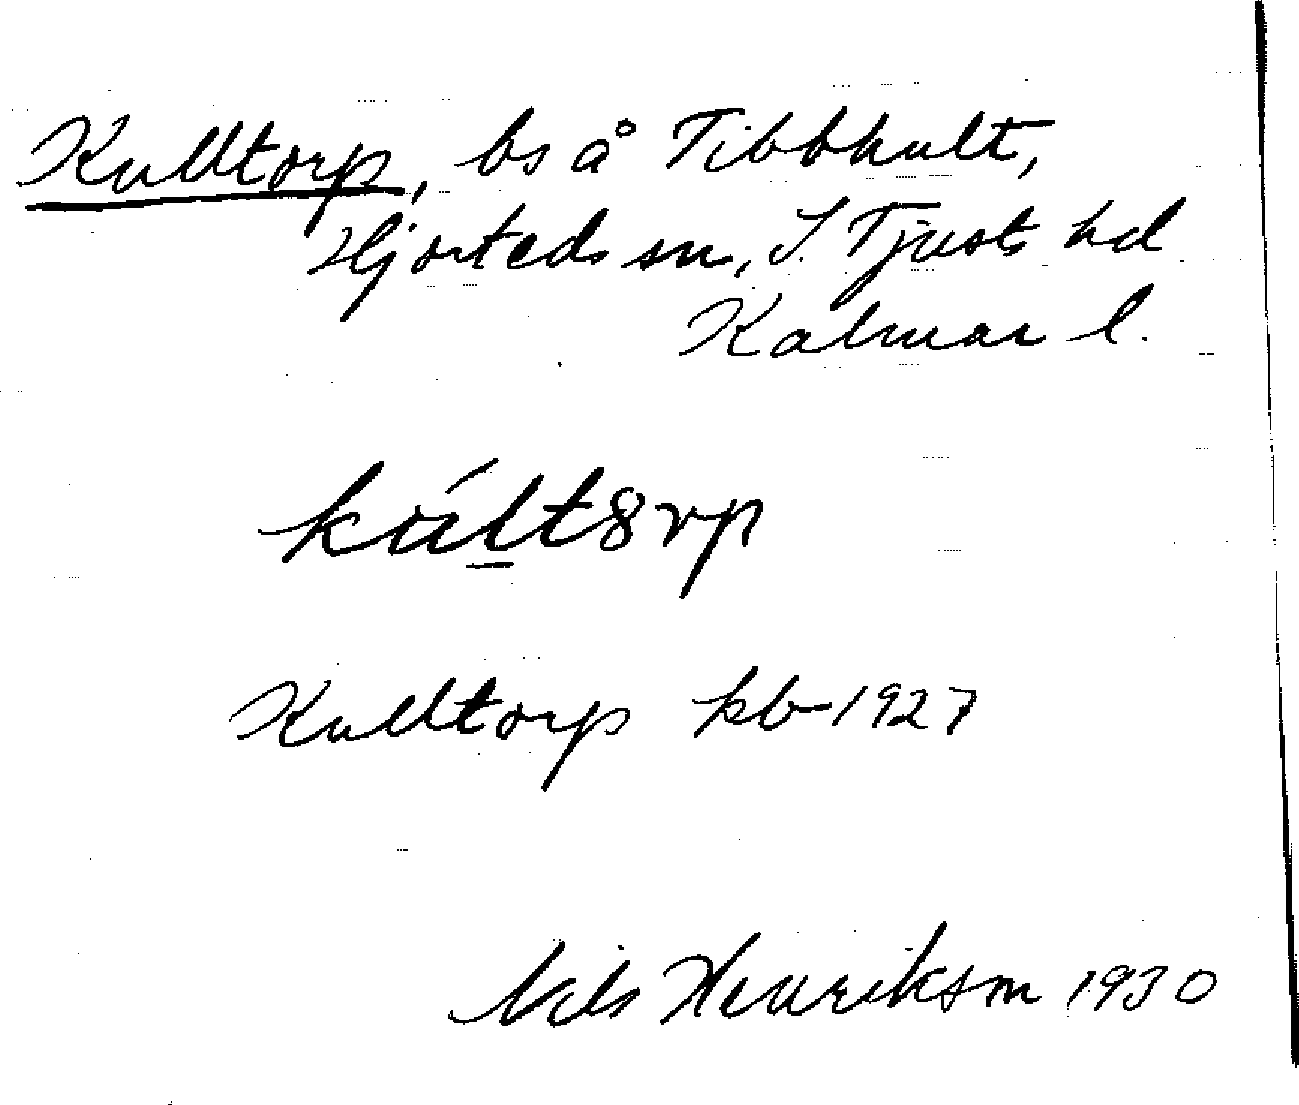 Kulltorp, bs å Tibbhult,
Hjorteds sn, S. Tjusts hd
Kalmar l.
kúlt8rp
Kulltorp kb 1927
Nils Henrikson 1930